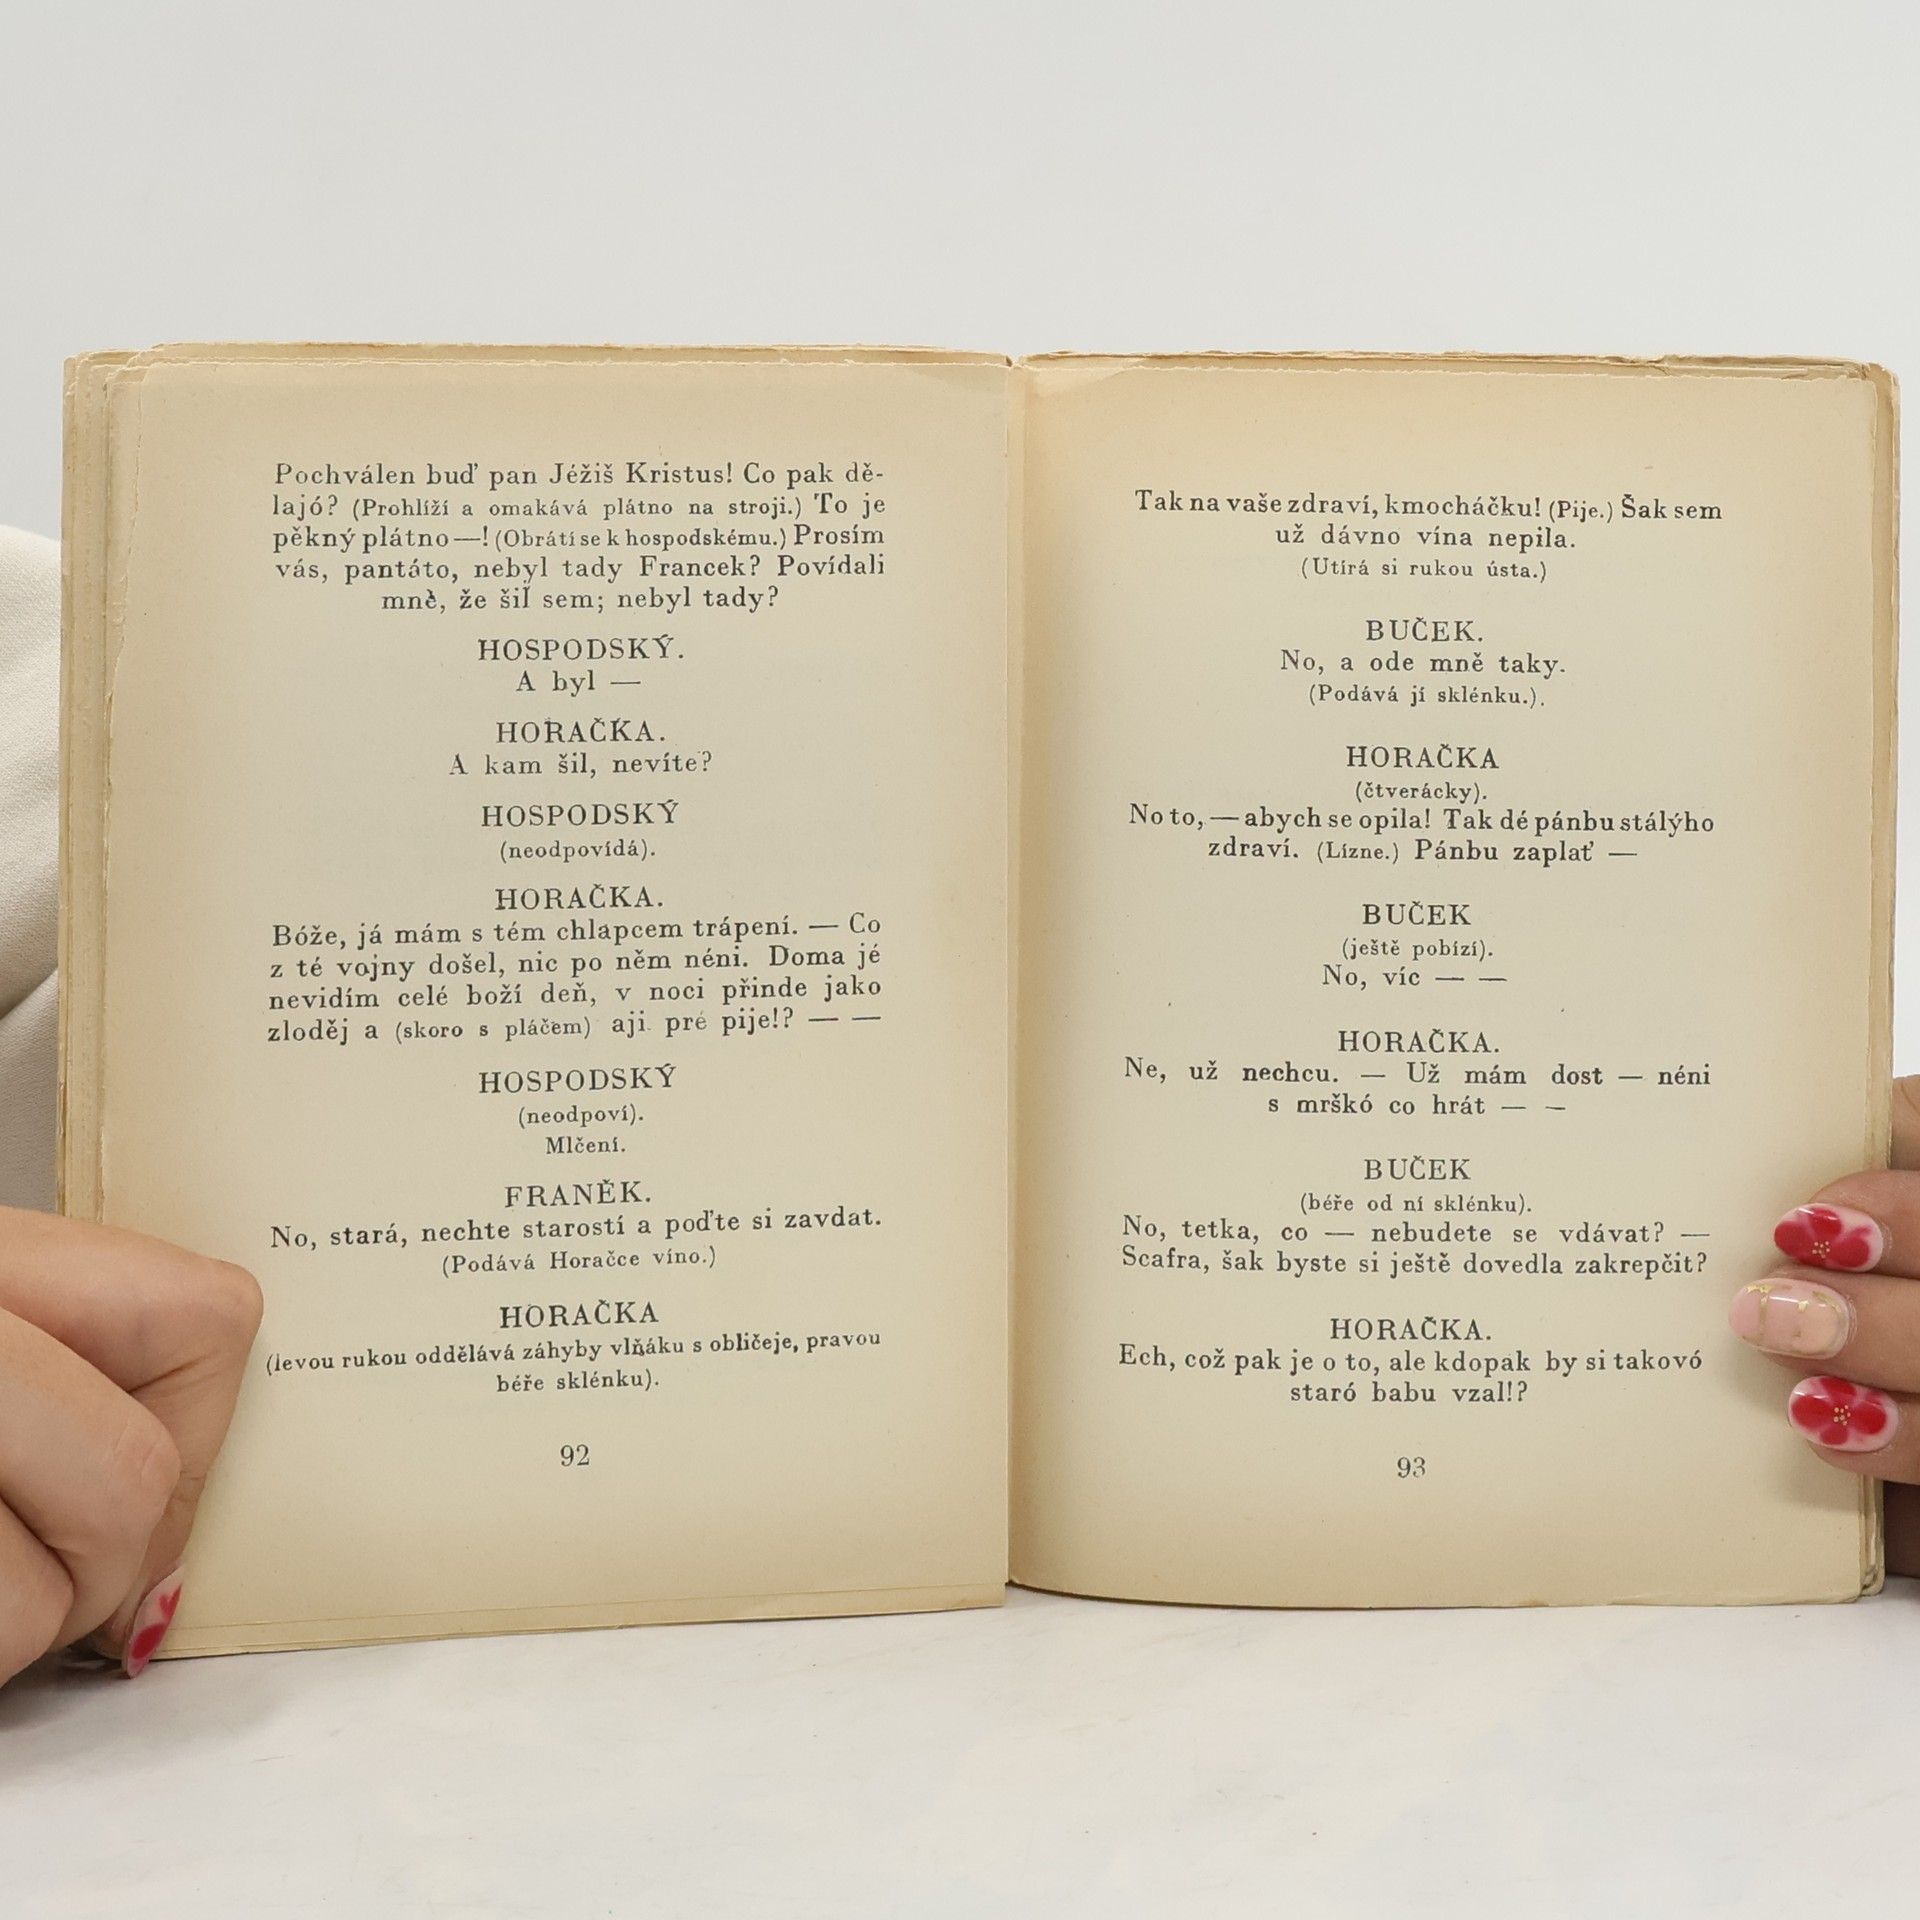 Pochválen buď pan Jéžiš Kristus! Co pak dě-
lajó? (Prohlíží a omakává plátno na stroji.) To je
pěkný plátno—! (Obrátí se k hospodskému.) Prosím
vás, pantáto, nebyl tady Francek? Povídali
mně, že šil sem; nebyl tady?
HOSPODSKÝ.
A byl —
HORAČKA.
A kam šil, nevíte?
HOSPODSKÝ
(neodpovídá).
HORAČKA.
Bóže, já mám s tém chlapcem trápení. — Co
z té vojny došel, nic po něm néni. Doma jé
nevidím celé boží deň, v noci přinde jako
zloděj a (skoro s pláčem) aji pré pije!? — —
HOSPODSKÝ
(neodpoví).
Mlčení.
FRANĚK.
No, stará, nechte starostí a poďte si zavdat.
(Podává Horačce víno.)
HORAČKA
(levou rukou oddělává záhyby vlňáku s obličeje, pravou
béře sklénku).
92
Tak na vaše zdraví, kmocháčku! (Pije.) Šak sem
už dávno vína nepila.
(Utírá si rukou ústa.)
BUČEK.
No, a ode mně taky.
(Podává jí sklénku.).
HORAČKA
(čtverácky).
No to, — abych se opila! Tak dé pánbu stálýho
zdraví. (Lízne.) Pánbu zaplať —
BUČEK
(ještě pobízí).
No, víc — —
HORAČKA.
Ne, už nechcu. — Už mám dost — néni
s mrškó co hrát — —
BUČEK
(béře od ní sklénku).
No, tetka, co — nebudete se vdávat? —
Scafra, šak byste si ještě dovedla zakrepčit?
HORAČKA.
Ech, což pak je o to, ale kdopak by si takovó
staró babu vzal!?
93